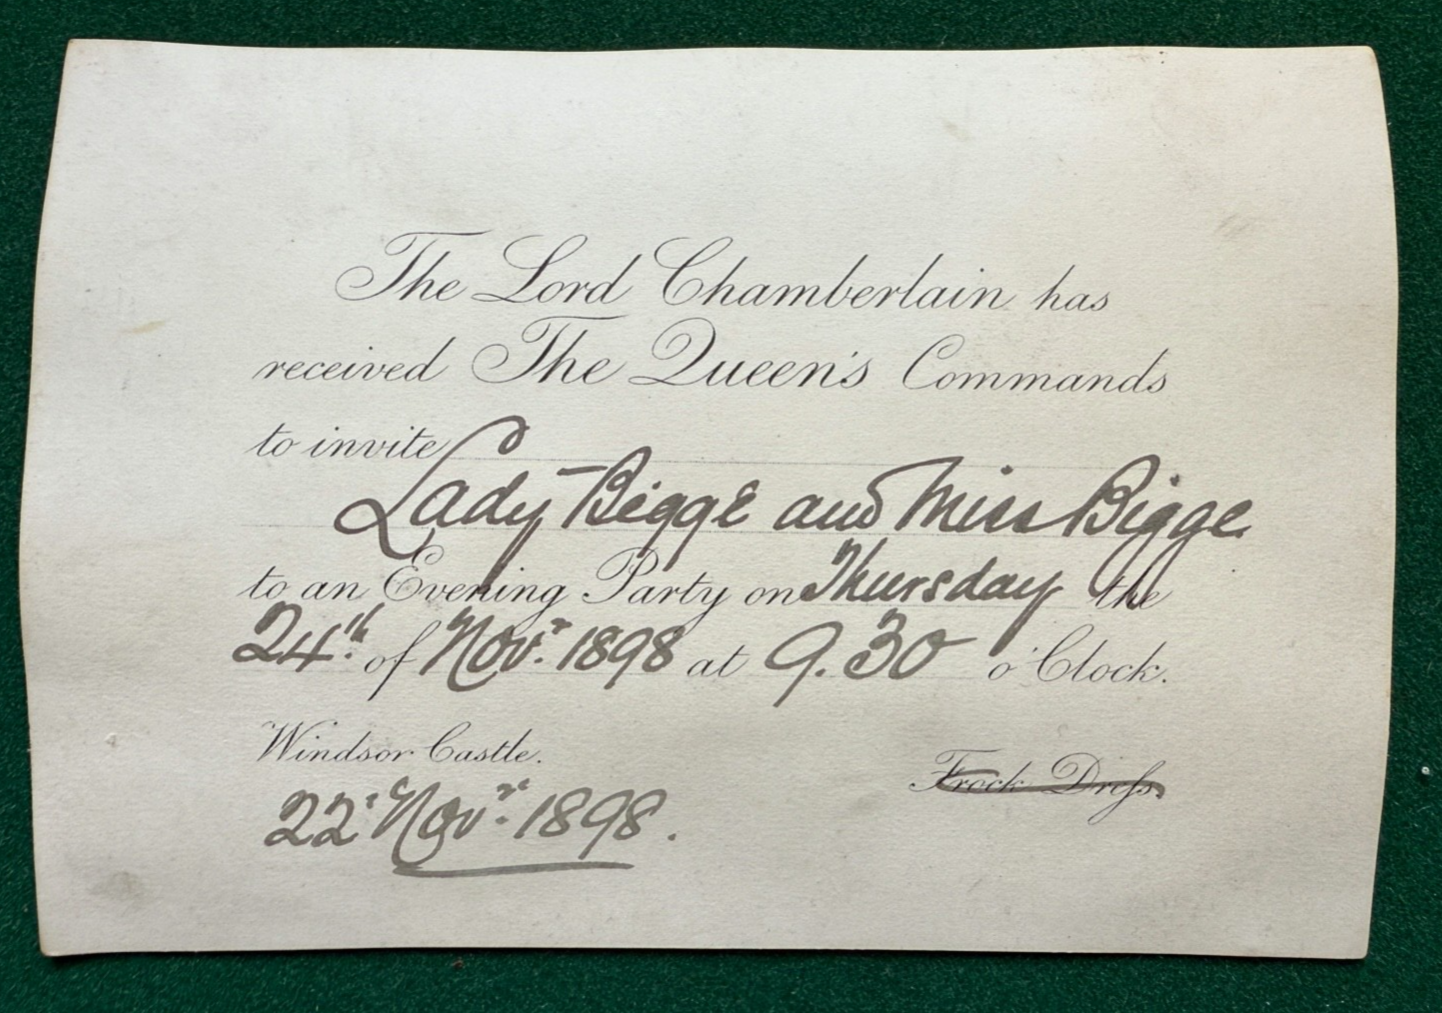 The Lord Chamberlain has
received The Queen's Commands
to invite
Lady Bigge and Miss Bigge
to an Evening Party on Thursday the
24th of Novr. 1898 at 9.30 o'Clock.
Windsor Castle.
Frock Dress.
22 Novr. 1898.